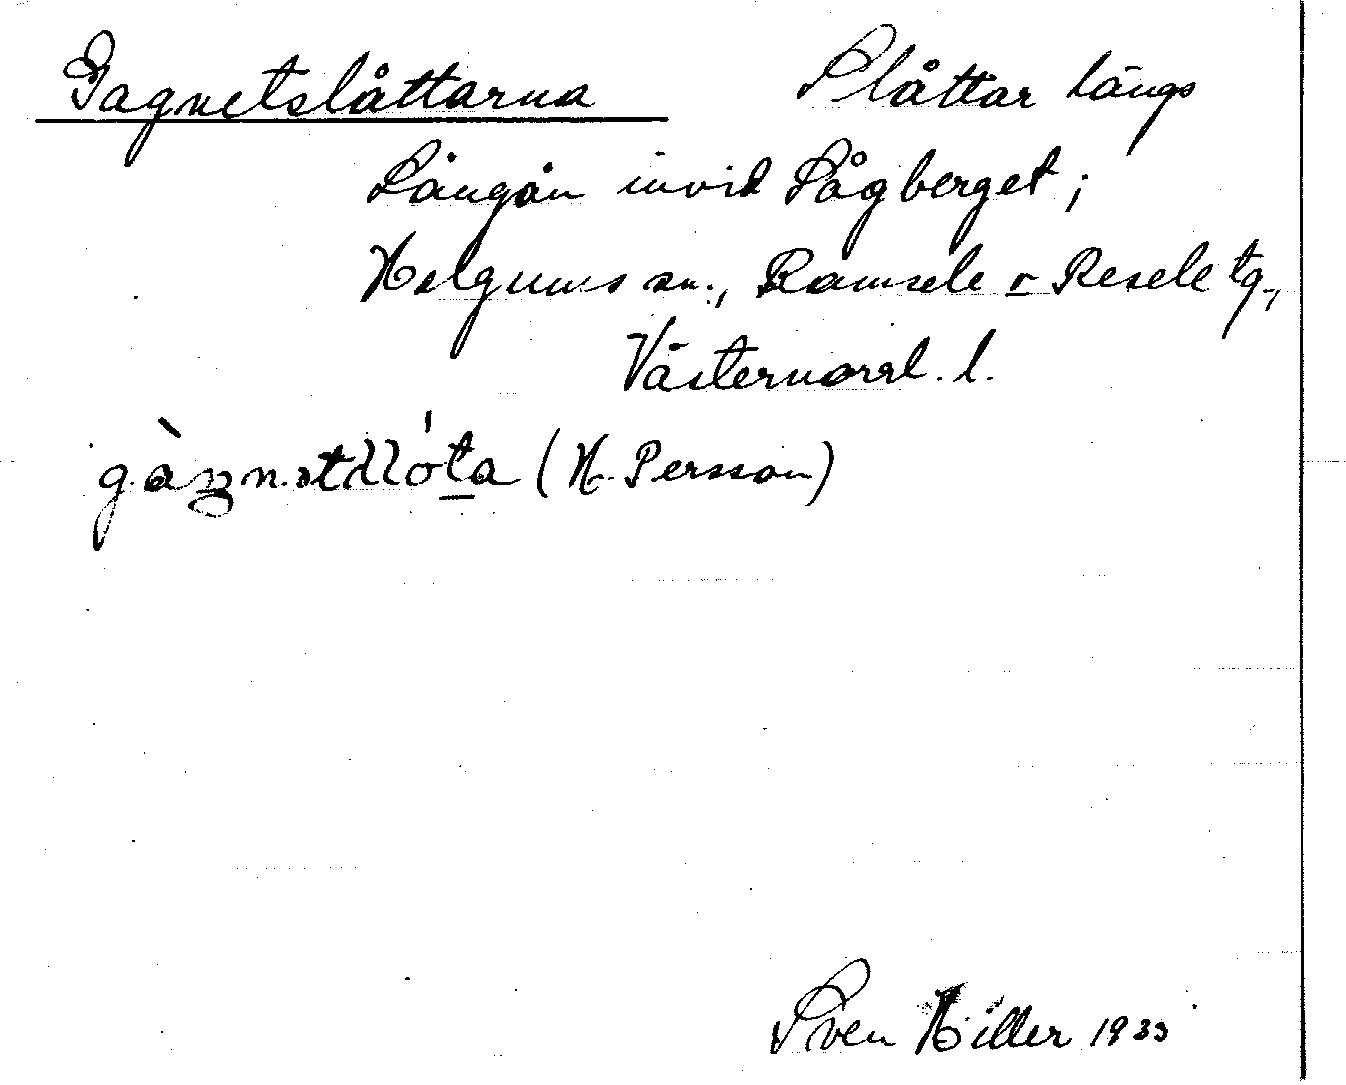 Gagnetslåttarna Slåttar längs
Långån invid Sågberget;
Helgums sn., Ramsele o Resele tg.,
Västernorrl. l.
(H. Persson)
Sven Hiller 1933